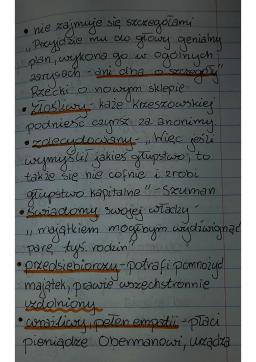 • nie zajmuje się szczegółami
„Przyjdzie mu do głowy genialny
plan, wykona go w ogólnych
zarysach - ani dba o szczegóły"
Rzecki o nowym sklepie
• złośliwy - każe Krzeszowskiej
podnieść czynsz za anonimy
• zdecydowany - „więc jeśli
wymyślił jakieś głupstwo, to
także się nie cofnie i zrobi
głupstwo kapitalne" - Szuman
• świadomy swojej władzy -
„majątkiem mógłbym wydźwignąć
parę tys. rodzin"
• przedsiębiorczy - potrafi pomnożyć
majątek, prawie wszechstronnie
uzdolniony
• wrażliwy, pełen empatii - płaci
pieniądze Obermanowi, urządza